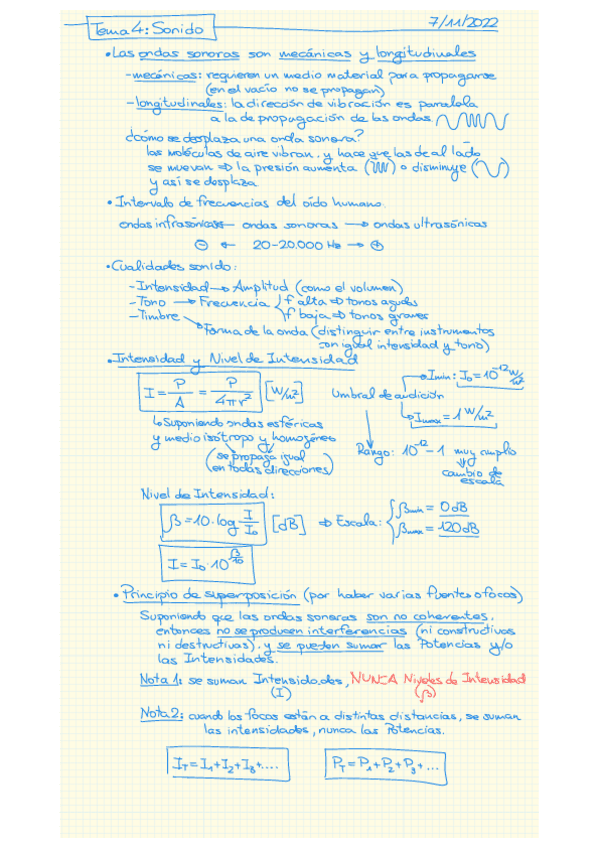 Tema 4: Sonido
7/11/2022
• Las ondas sonoras son mecánicas y longitudinales
- mecánicas: requieren un medio material para propagarse
(en el vacío no se propagan)
- longitudinales: la dirección de vibración es paralela
a la de propagación de las ondas
¿cómo se desplaza una onda sonora?
las moléculas de aire vibran, y hace que las de al lado
se muevan ⇒ la presión aumenta ( ) o disminuye ( )
y así se desplaza
• Intervalo de frecuencias del oído humano.
ondas infrasónicas ← ondas sonoras → ondas ultrasónicas
⊖ ← 20-20.000 Hz → ⊕
• Cualidades sonido:
- Intensidad → Amplitud (como el volumen)
- Tono → Frecuencia { f alta ⇒ tonos agudos
f baja ⇒ tonos graves
- Timbre
→ Forma de la onda (distinguir entre instrumentos
con igual intensidad y tono)
• Intensidad y Nivel de Intensidad
I = P/A = P/4πr² [W/m²]
Umbral de audición
Imin: I₀ = 10⁻¹² W/m²
Imax = 1 W/m²
↳ Suponiendo ondas esféricas
y medio isótropo y homogéneo
(se propaga igual
en todas direcciones)
Rango: 10⁻¹² - 1 muy amplio
cambio de
escala
Nivel de Intensidad:
β = 10·log I/I₀ [dB] ⇒ Escala: { βmin = 0dB
βmax = 120dB
I = I₀·10^(β/10)
• Principio de superposición (por haber varias fuentes o focos)
Suponiendo que las ondas sonoras son no coherentes,
entonces no se producen interferencias (ni constructivas
ni destructivas), y se pueden sumar las Potencias y/o
las Intensidades.
Nota 1: se suman Intensidades, NUNCA Niveles de Intensidad
(I) (β)
Nota 2: cuando los focos están a distintas distancias, se suman
las intensidades, nunca las Potencias.
I_T = I₁+I₂+I₃+....
P_T = P₁+P₂+P₃+...